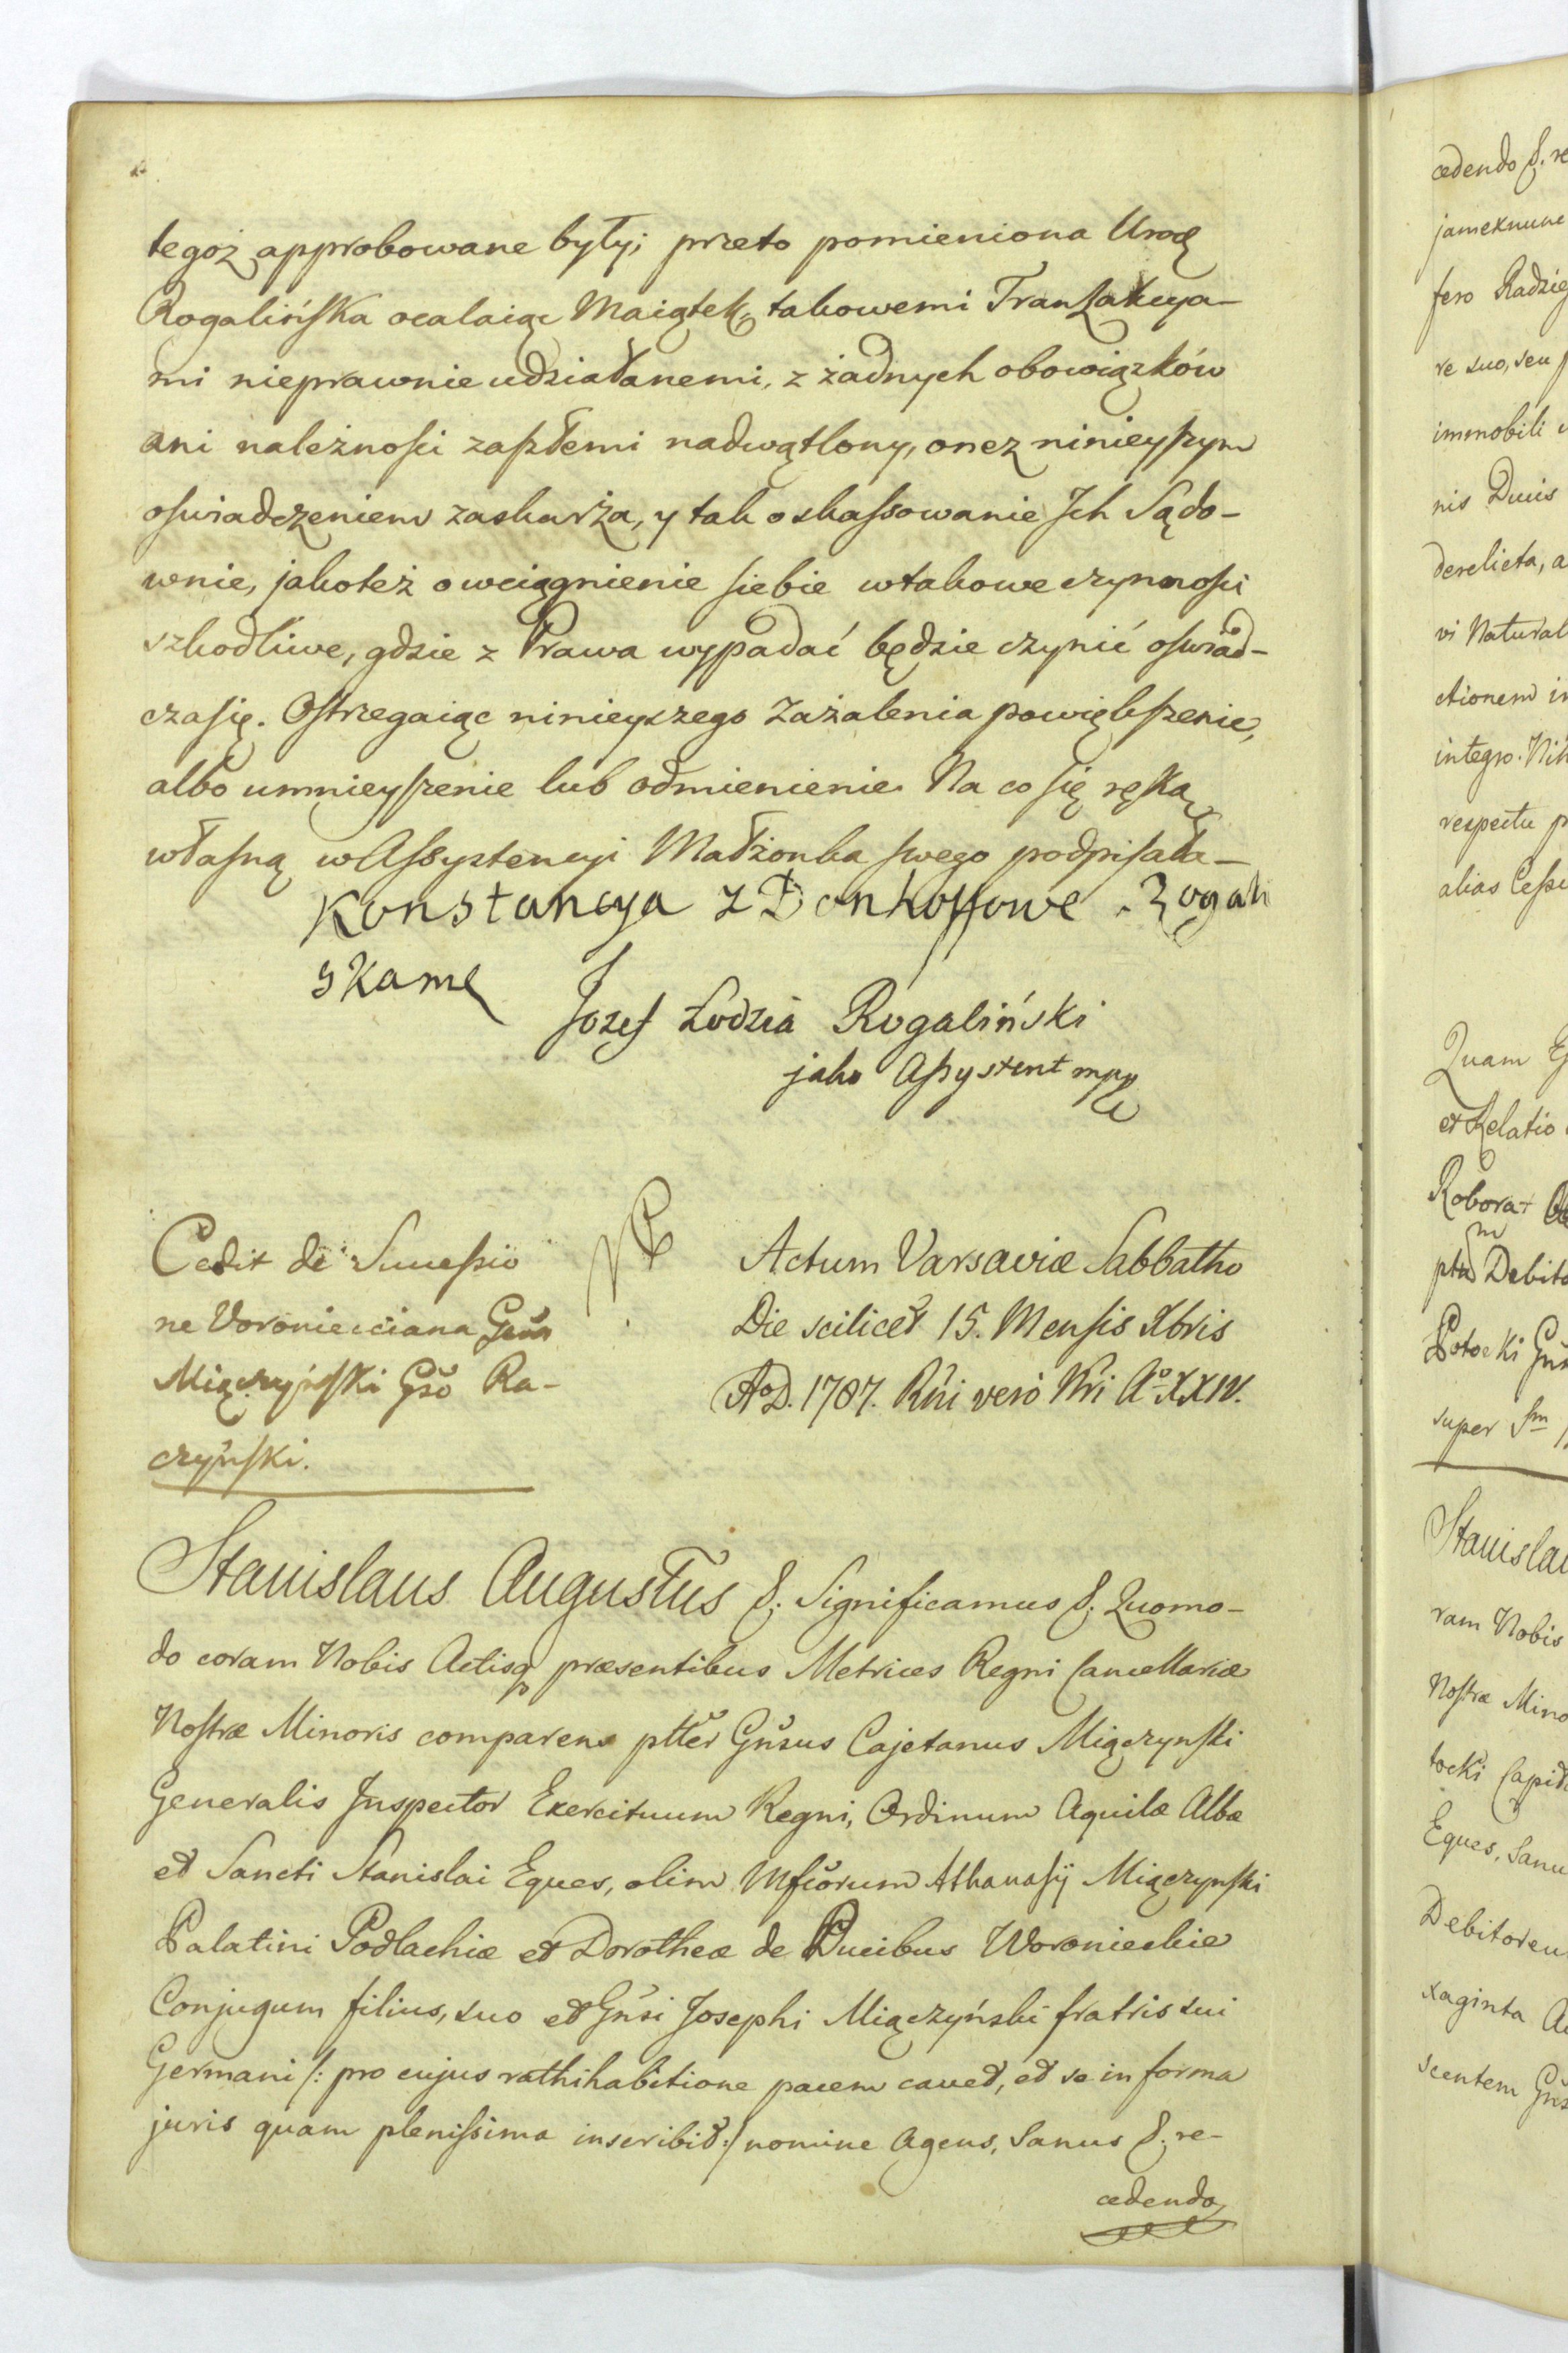 tegoż approbowane były; przeto pomieniona Urodz
Rogalińska ocalaiąc Maiątek, takowemi Tranzakcya-
mi nieprawnie udziałanemi, z żadnych obowiązków
ani należności zaszłemi nadwątlony, onez ninieyszym
oświadczeniem zaskarża, y tak o skassowanie Ich Sądo-
wnie, jakoteż o wciągnienie siebie w takowe czynności
szkodliwe, gdzie z Prawa wypadać będzie czynić oświad-
cza się. Ostrzegaiąc ninieyszego Zażalenia powiększenie,
albo umnieyszenie lub odmienienie. Na co się ręką
własną w Assystencyi Małżonka swego podpisała-
Konstancya z Donhoffowe Rogali
skamę
Jozef Łodzia Rogaliński
jako Assystent mpp
Cedit de Successio
ne Voroniecciana Gñsus
Miączyński Gso Ra-
czyński.
Actum Varsaviæ Sabbatho
Die scilicet 15. Mensis Xbris
AoD. 1787. Rñi verò Nri Ao XXIV.
Stanislaus Augustus &. Significamus &. Quomo-
do coram Nobis Actisq præsentibus Metrices Regni Cancellariæ
Nostræ Minoris comparens ptter Gñsus Cajetanus Miączynski
Generalis Inspector Exercituum Regni, Ordinum Aquilæ Albæ
et Sancti Stanislai Eques, olim Mfcorum Athanasij Miączynski
Palatini Podlachiæ et Dorotheæ de Ducibus Woronieckie
Conjugum filius, suo et Gñsi Josephi Miączyński fratris sui
Germani /: pro cujus rathihabitione pacem cavet, et se in forma
juris quam plenissima inscribit :/ nomine Agens, Sanus &. re-
cedendo
cedendo &. re
jamexnunc
fero
re suo, seu
immobili
nis Ducis
derelicta, a
vi Natural
ctionem in
integro. Nih
respectu
alias Cessi
Quam
et Relatio
Roborat
Debito
Potocki
super
Stanislau
ram Nobis
Nostræ Mino
tocki Capit
Eques, Sanc
Debitorem
xaginta
scentem